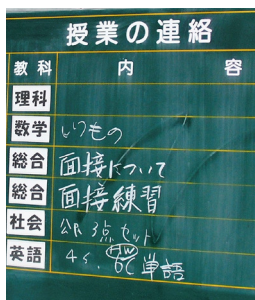 授業の連絡
教科 内容
理科
数学 いつもの
総合 面接について
総合 面接練習
社会 公民 3点セット
HW
英語 単語